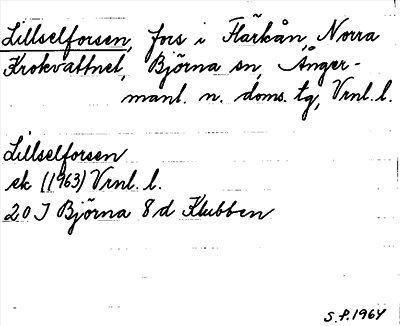 Lillselforsen, fors i Flärkån, Norra
Krokvattnet, Björna sn, Ånger-
manl. n. doms. tg, Vrnl. l.
Lillselforsen
ek (1963) Vrnl. l.
20 J Björna 8 d Klubben
S.P. 1964